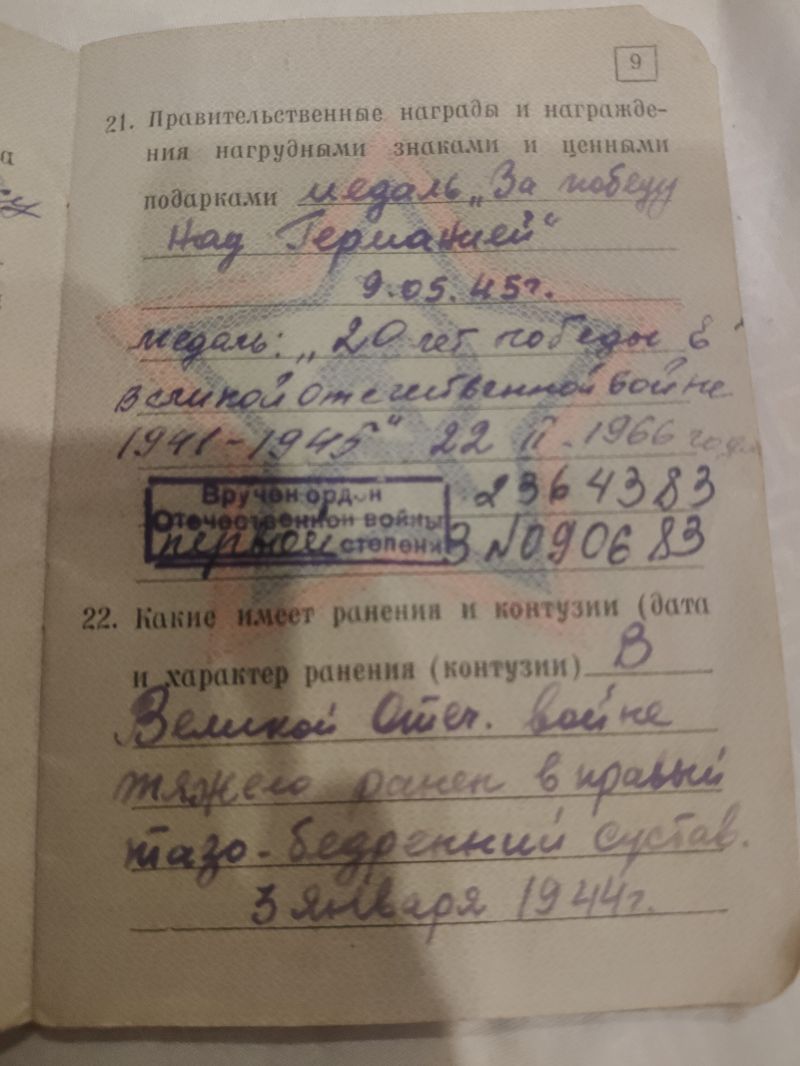 9
21. Правительственные награды и награжде-
ния нагрудными знаками и ценными
подарками медаль „За победу
над Германией“
9.05.45г.
медаль: „20 лет победы в
Великой Отечественной войне
1941-1945“ 22 II. 1966 года
Вручен орден 2364383
Отечественной войны
первой степени З №090683
22. Какие имеет ранения и контузии (дата
и характер ранения (контузии) В
Великой Отеч. войне
тяжело ранен в правый
тазо-бедренный сустав.
3 января 1944г.